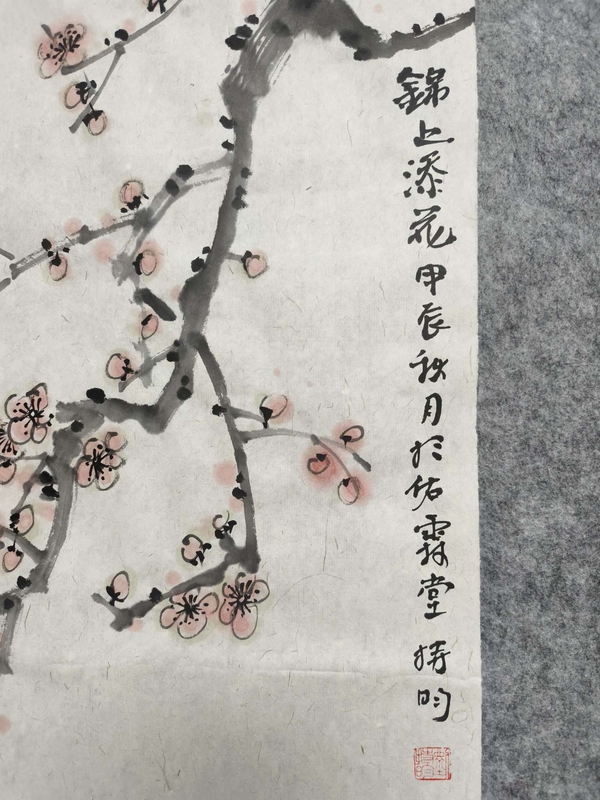 錦上添花甲辰秋月於佑霖堂 旿